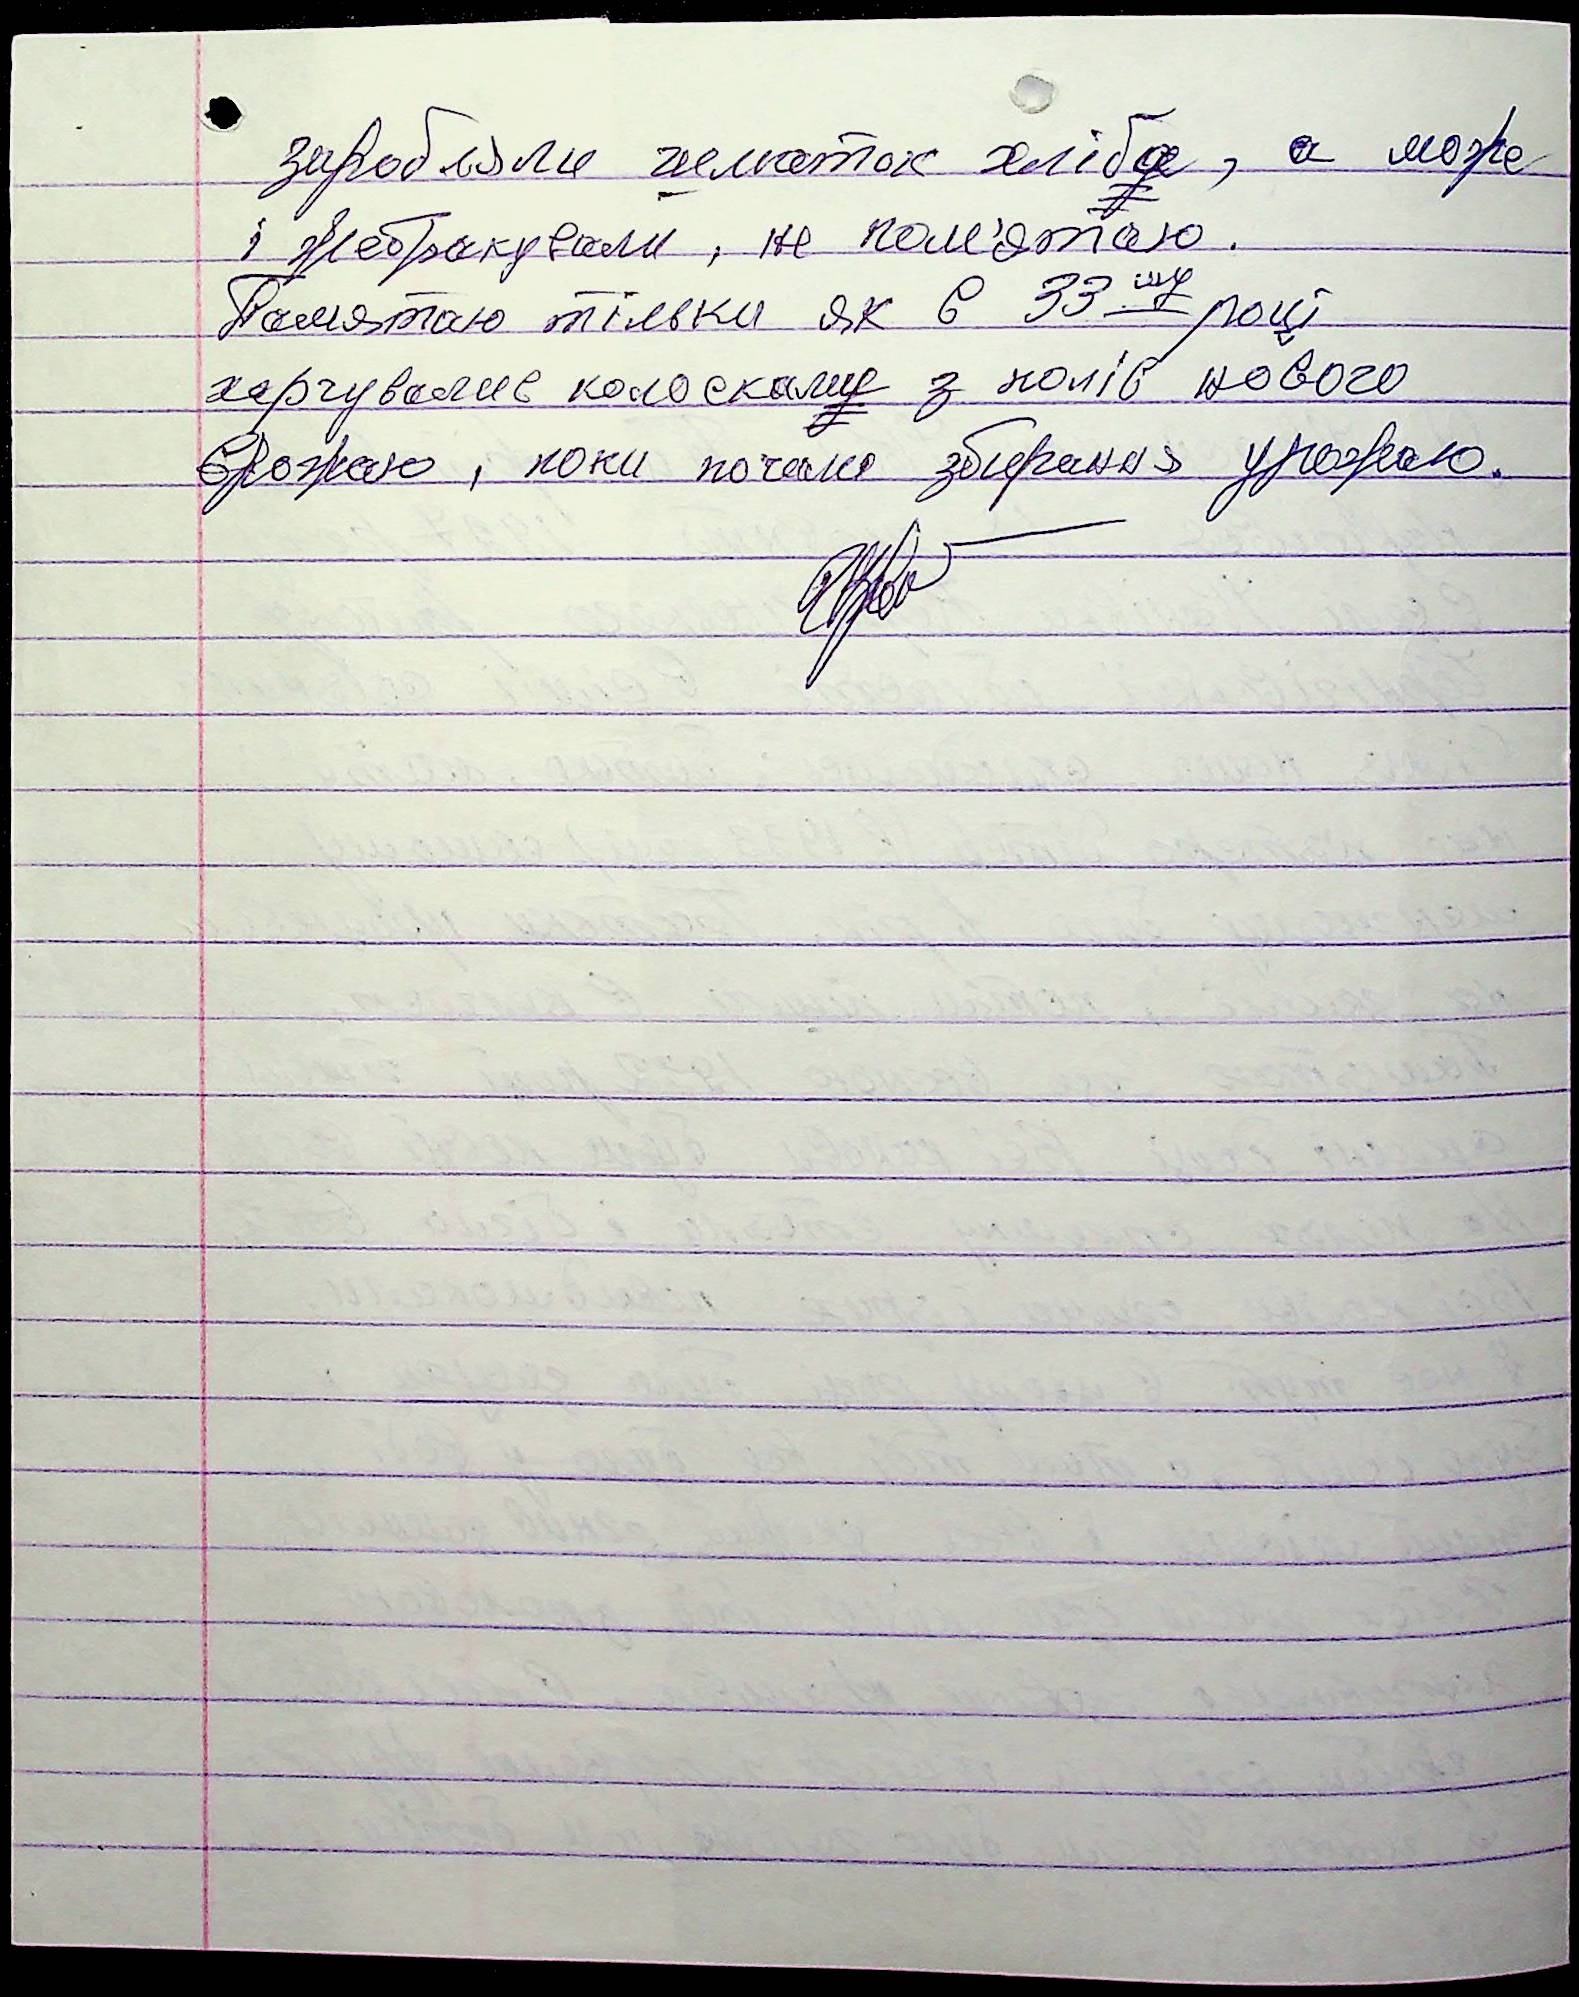 заробляли шматок хліба, а може
і жебракували, не пам'ятаю.
Памятаю тільки як в 33 му році
харчувалис колосками з полів нового
врожаю, поки почали збирання урожаю.